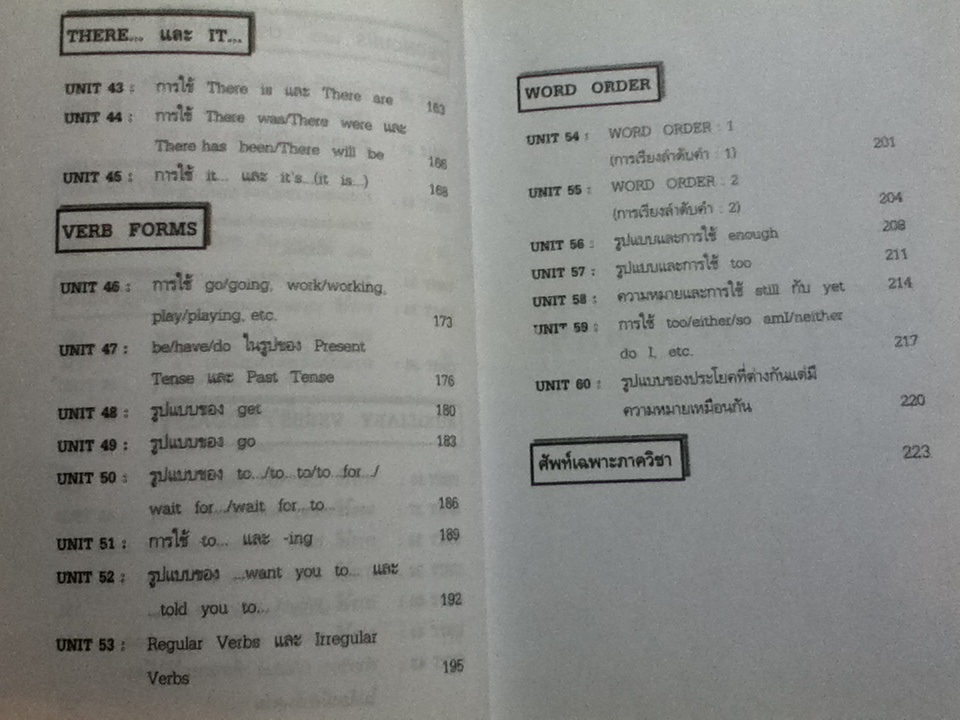 THERE... และ IT...
UNIT 43 : การใช้ There is และ There are 163
UNIT 44 : การใช้ There was/There were และ
There has been/There will be 166
UNIT 45 : การใช้ it... และ it's...(it is...) 168
VERB FORMS
UNIT 46 : การใช้ go/going, work/working,
play/playing, etc. 173
UNIT 47 : be/have/do ในรูปของ Present
Tense และ Past Tense 176
UNIT 48 : รูปแบบของ get 180
UNIT 49 : รูปแบบของ go 183
UNIT 50 : รูปแบบของ to.../to...to/to...for.../
wait for.../wait for...to... 186
UNIT 51 : การใช้ to... และ -ing 189
UNIT 52 : รูปแบบของ ...want you to... และ
...told you to... 192
UNIT 53 : Regular Verbs และ Irregular
Verbs 195
WORD ORDER
UNIT 54 : WORD ORDER : 1
(การเรียงลำดับคำ : 1) 201
UNIT 55 : WORD ORDER : 2
(การเรียงลำดับคำ : 2) 204
UNIT 56 : รูปแบบและการใช้ enough 208
UNIT 57 : รูปแบบและการใช้ too 211
UNIT 58 : ความหมายและการใช้ still กับ yet 214
UNIT 59 : การใช้ too/either/so amI/neither
do I, etc. 217
UNIT 60 : รูปแบบของประโยคที่ต่างกันแต่มี
ความหมายเหมือนกัน 220
ศัพท์เฉพาะภาควิชา 223